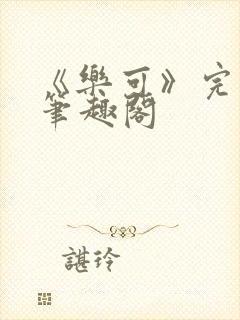 《樂可》完
筆趣閣
諶玲